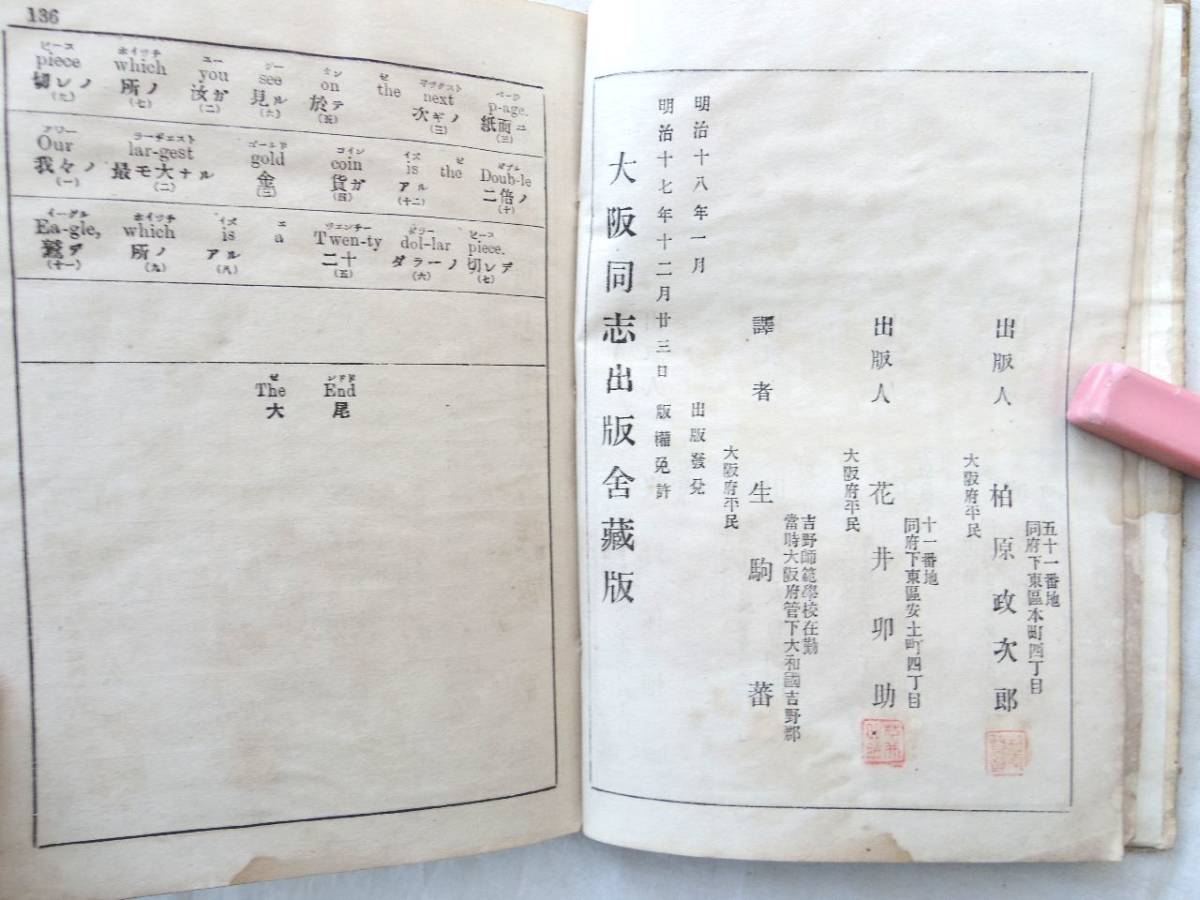 136
ピース ホイッチ ユー シー オン ゼ ネクスト ページ
piece which you see on the next p-age.
切レノ 所ノ 汝ガ 見ル 於テ 次ギノ 紙面ニ
(九) (七) (二) (六) (五) (三)
アワー ラーヂェスト ゴールド コイン イズ ゼ ダブル
Our lar-gest gold coin is the Doub-le
我々ノ 最モ大ナル 金 貨ガ アル 二倍ノ
(一) (二) (三) (四) (十二) (十)
イーグル ホイッチ イズ エ ツエンチー ダラー ピース
Ea-gle, which is a Twen-ty dol-lar piece.
鷲デ 所ノ アル 二十 ダラーノ 切レデ
(十一) (九) (八) (五) (六) (七)
ゼ
The End
大 尾
出版人 柏原政次郎
大阪府平民
同府下東區本町四丁目
五十一番地
出版人 花井卯助
大阪府平民
同府下東區安土町四丁目
十一番地
譯者 生駒蕃
大阪府平民
吉野師範學校在勤
當時大阪府管下大和國吉野郡
明治十八年一月 出版發兌
明治十七年十二月廿三日 版權免許
大阪同志出版舍藏版